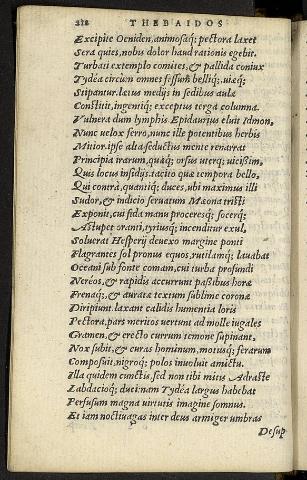 218 THEBAIDOS
Excipite Oeniden, animosaq; pectora laxet
Sera quies, nobis dolor haud rationis egebit.
Turbati extemplo comites, & pallida coniux
Tydéa circùm omnes fessum belliq;, uiæq;
Stipantur. lætus medijs in sedibus aulæ
Constitit, ingentiq; exceptus terga columna.
Vulnera dum lymphis Epidaurius eluit Idmon,
Nunc uelox ferro, nunc ille potentibus herbis
Mitior. ipse alta seductus mente renarrat
Principia irarum, quæq; orsus uterq; uicißim,
Quis locus insidijs. tacito quæ tempora bello,
Qui contrà, quantiq; duces, ubi maximus illi
Sudor, & indicio seruatum Mæona tristi
Exponit, cui fida manu proceresq; socerq;
Astupet oranti, tyriusq; incenditur exul,
Soluerat Hesperij deuexo margine ponti
Flagrantes sol pronus equos, rutilamq; lauabat
Oceani sub fonte comam, cui turba profundi
Neréos, & rapidis accurrunt paßibus horæ
Frenaq;, & auratæ textum sublime coronæ
Diripiunt. laxant calidis humentia loris
Pectora, pars meritos uertunt ad molle iugales
Gramen, & erecto currum temone supinant.
Nox subit, & curas hominum, motusq; ferarum
Composuit, nigroq; polos inuoluit amictu.
Illa quidem cunctis, sed non tibi mitis Adraste
Labdacioq; duci: nam Tydéa largus habebat
Perfusum magna uirtutis imagine somnus.
Et iam noctiuagas inter deus armiger umbras
Desup